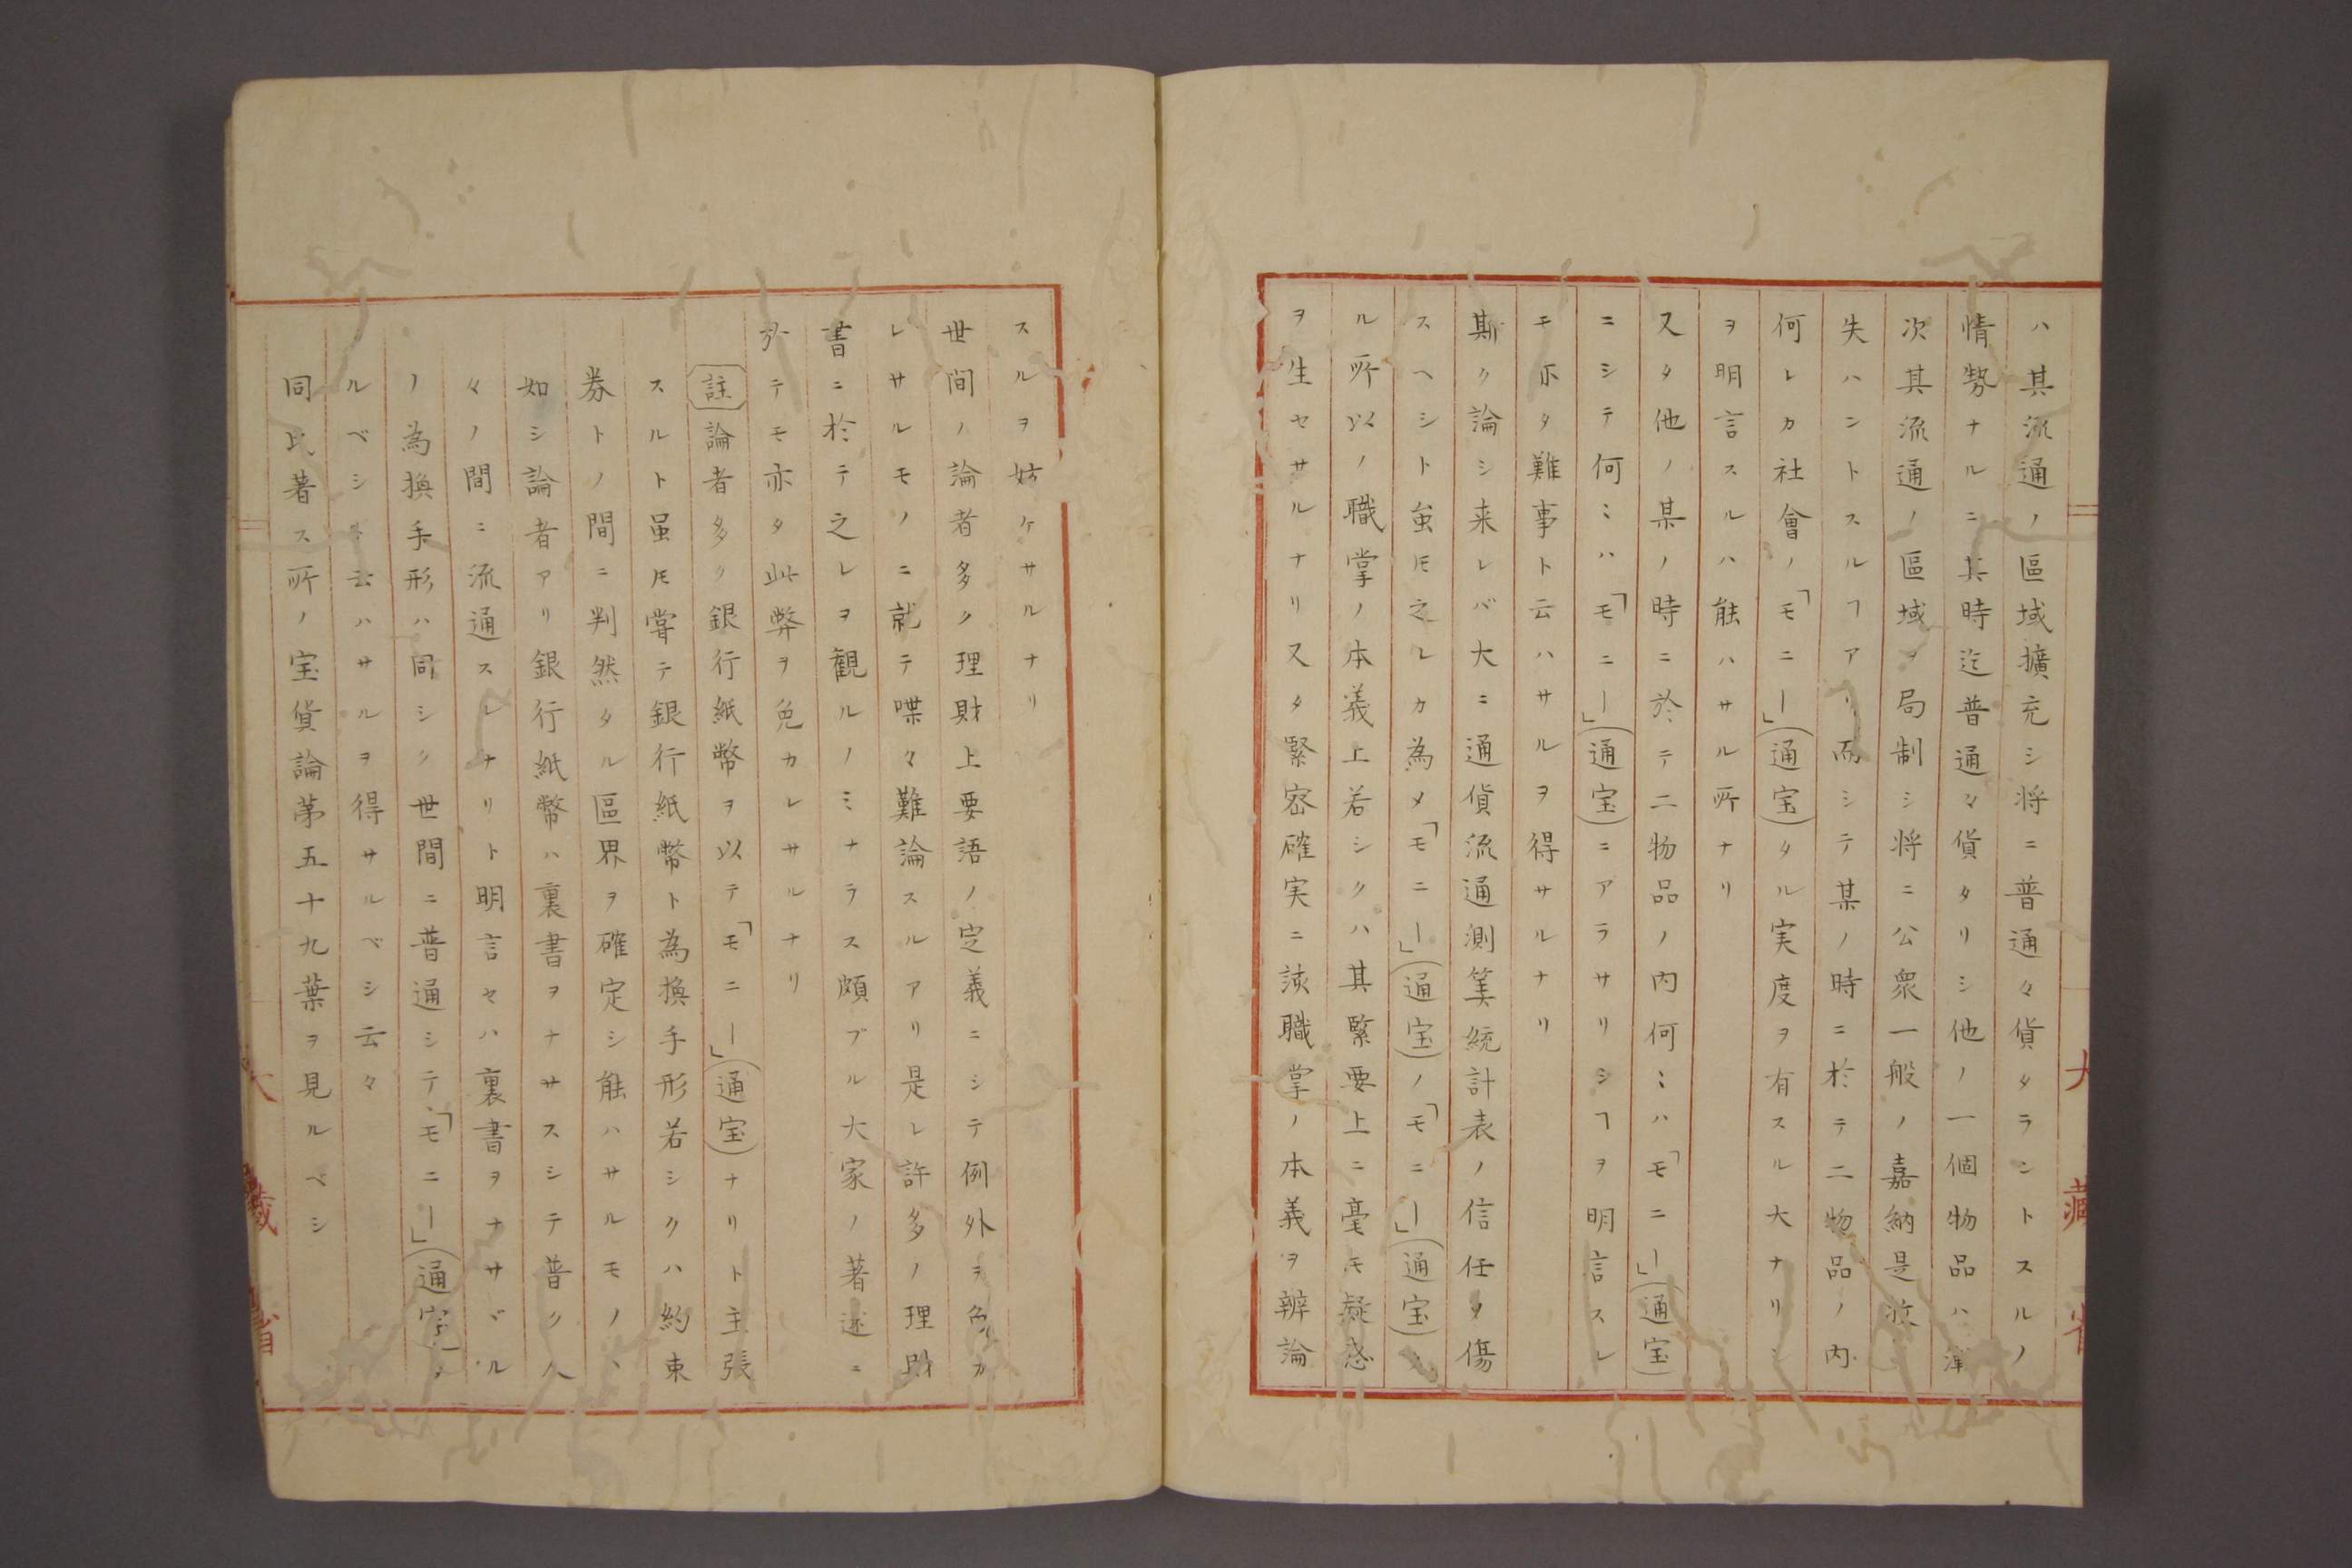 ハ其流通ノ區域擴充シ将ニ普通々貨タラントスルノ
情勢ナルニ其時迄普通々貨タリシ他ノ一個物品ハ漸
次其流通ノ區域ヲ局制シ将ニ公衆一般ノ嘉納是汝
失ハントスルヿアリ而シテ某ノ時ニ於テ二物品ノ内
何レカ社會ノ「モニー」(通宝)タル実度ヲ有スル大ナリシ
ヲ明言スルハ能ハサル所ナリ
又タ他ノ某ノ時ニ於テ二物品ノ内何ミハ「モニー」(通宝)
ニシテ何ミハ「モニー」(通宝)ニアラサリシヿヲ明言スレ
モ亦タ難事ト云ハサルヲ得サルナリ
斯ク論シ来レバ大ニ通貨流通測筭統計表ノ信任ヲ傷
スヘシト虽𪜈之レカ為メ「モニー」(通宝)ノ「モニー」(通宝)
ル所以ノ職掌ノ本義上若シクハ其緊要上ニ毫モ疑惑
ヲ生セサルナリ又タ緊密確実ニ該職掌ノ本義ヲ辨論
大藏省
スルヲ妨ケサルナリ
世间ノ論者多ク理財上要語ノ定義ニシテ例外ヲ免カ
レサルモノニ就テ喋々難論スルアリ是レ許多ノ理財
書ニ於テ之レヲ観ルノミナラス頗ブル大家ノ著述ニ
於テモ亦タ此弊ヲ免カレサルナリ
註論者多ク銀行紙幣ヲ以テ「モニー」(通宝)ナリト主張
スルト虽𪜈嘗テ銀行紙幣ト為換手形若シクハ約束
券トノ間ニ判然タル區界ヲ確定シ能ハサルモノヽ
如シ論者アリ銀行紙幣ハ裏書ヲナサスシテ普ク人
々ノ間ニ流通スレナリト明言セハ裏書ヲナサヾル
ノ為換手形ハ同シク世間ニ普通シテ「モニー」(通宝)
ルベシト云ハサルヲ得サルベシ云々
同氏著ス所ノ宝貨論苐五十九葉ヲ見ルベシ
大藏省